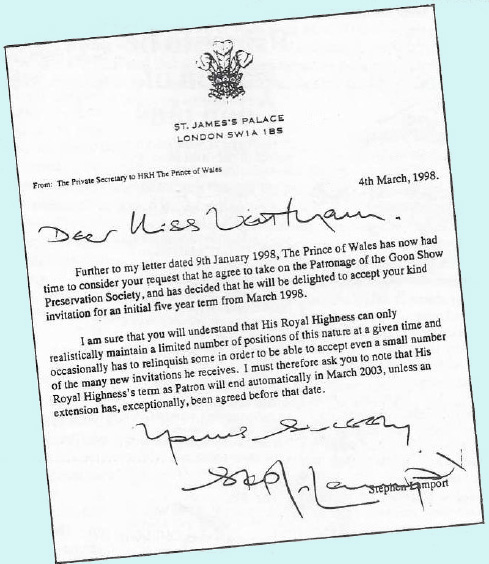 ST. JAMES'S PALACE
LONDON SW1A 1BS
From: The Private Secretary to HRH The Prince of Wales
4th March, 1998.
Dear Miss
Further to my letter dated 9th January 1998, The Prince of Wales has now had
time to consider your request that he agree to take on the Patronage of the Goon Show
Preservation Society, and has decided that he will be delighted to accept your kind
invitation for an initial five year term from March 1998.
I am sure that you will understand that His Royal Highness can only
realistically maintain a limited number of positions of this nature at a given time and
occasionally has to relinquish some in order to be able to accept even a small number
of the many new invitations he receives. I must therefore ask you to note that His
Royal Highness's term as Patron will end automatically in March 2003, unless an
extension has, exceptionally, been agreed before that date.
Yours sincerely
Stephen Lamport
Stephen Lamport